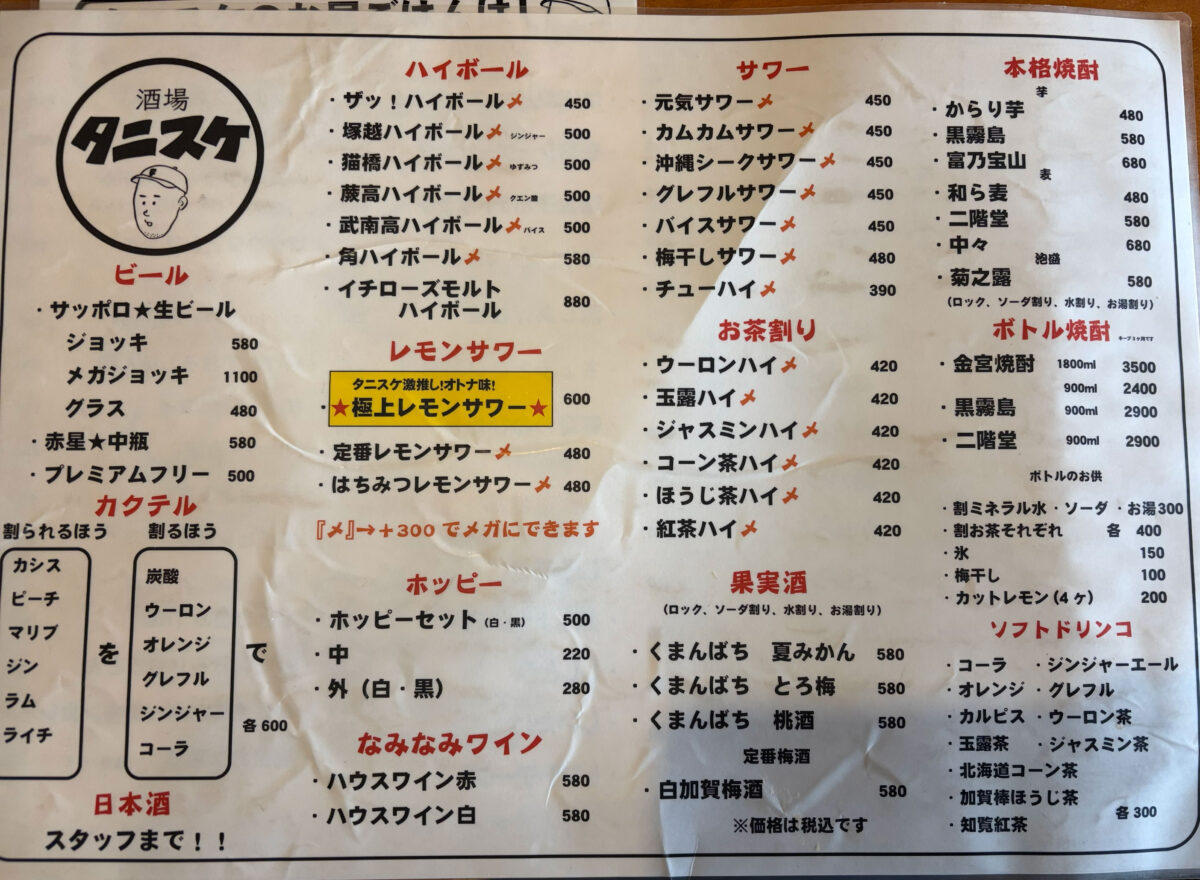 酒場
タニスケ
ビール
・サッポロ★生ビール
ジョッキ 580
メガジョッキ 1100
グラス 480
・赤星★中瓶 580
・プレミアムフリー 500
カクテル
割られるほう 割るほう
カシス
ピーチ
マリブ
ジン
ラム
ライチ
を
炭酸
ウーロン
オレンジ
グレフル
ジンジャー
コーラ
で
各600
日本酒
スタッフまで！！
ハイボール
・ザッ！ハイボールメ 450
・塚越ハイボールメ ジンジャー 500
・猫橋ハイボールメ ゆずみつ 500
・蕨高ハイボールメ クエン酸 500
・武南高ハイボールメ バイス 500
・角ハイボールメ 580
・イチローズモルト
ハイボール 880
レモンサワー
タニスケ激推し！オトナ味！
・★極上レモンサワー★ 600
・定番レモンサワーメ 480
・はちみつレモンサワーメ 480
『メ』→＋300でメガにできます
ホッピー
・ホッピーセット（白・黒） 500
・中 220
・外（白・黒） 280
なみなみワイン
・ハウスワイン赤 580
・ハウスワイン白 580
サワー
・元気サワーメ 450
・カムカムサワーメ 450
・沖縄シークサワーメ 450
・グレフルサワーメ 450
・バイスサワーメ 450
・梅干しサワーメ 480
・チューハイメ 390
お茶割り
・ウーロンハイメ 420
・玉露ハイメ 420
・ジャスミンハイメ 420
・コーン茶ハイメ 420
・ほうじ茶ハイメ 420
・紅茶ハイメ 420
果実酒
（ロック、ソーダ割り、水割り、お湯割り）
・くまんばち 夏みかん 580
・くまんばち とろ梅 580
・くまんばち 桃酒 580
定番梅酒
・白加賀梅酒 580
※価格は税込です
本格焼酎
芋
・からり芋 480
・黒霧島 580
・富乃宝山 680
麦
・和ら麦 480
・二階堂 580
・中々 680
泡盛
・菊之露 580
（ロック、ソーダ割り、水割り、お湯割り）
ボトル焼酎
・金宮焼酎 1800ml 3500
900ml 2400
・黒霧島 900ml 2900
・二階堂 900ml 2900
ボトルのお供
・割ミネラル水・ソーダ・お湯300
・割お茶それぞれ 各 400
・氷 150
・梅干し 100
・カットレモン（4ヶ） 200
ソフトドリンコ
・コーラ ・ジンジャーエール
・オレンジ ・グレフル
・カルピス ・ウーロン茶
・玉露茶 ・ジャスミン茶
・北海道コーン茶
・加賀棒ほうじ茶
・知覧紅茶
各300